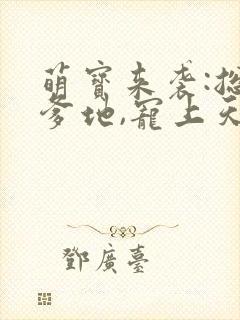 萌寶来袭:总
爹地,宠上天
鄧廣臺